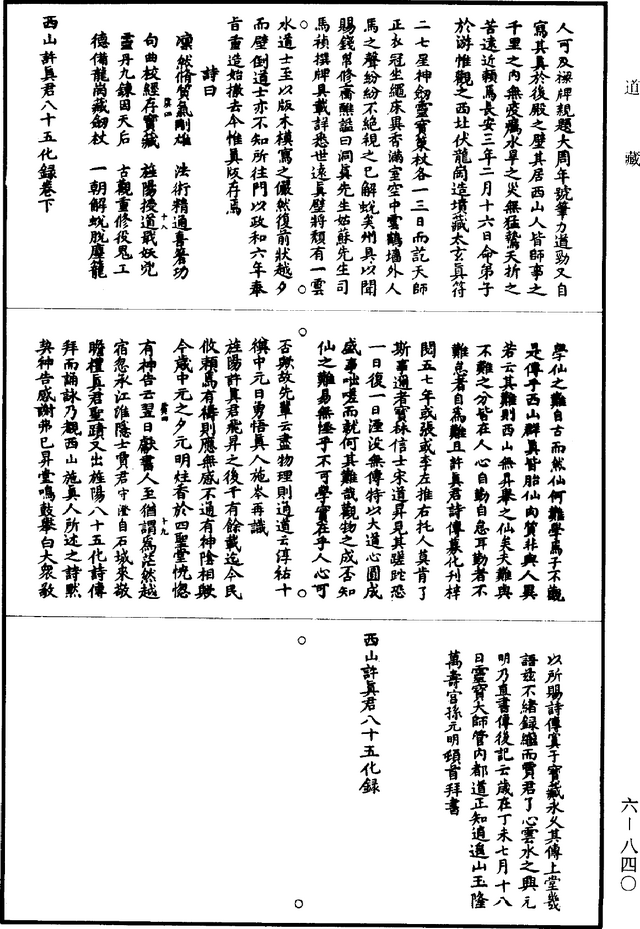 道藏
人可及標牌親題大周年號筆力遒勁又自
寫其真於後殿之壁其居西山人皆師事之
千里之内無疫癘水旱之災無猛鷙夭折之
苦遠近賴焉長安三年二月十六日命弟子
於游帷觀之西北伏龍崗造墳藏太玄真符
二七星神劍靈寶策杖各一三日而訖天師
正衣冠坐繩床異香滿室空中雲鶴墻外人
馬之聲紛紛不絶視之已解蛻矣州具以聞
賜錢帛修齋醮謚曰洞真先生姑蘇先生司
馬禎撰碑具載詳悉世遠真壁將頽有一雲
水道士至以版木模寫之儼然復前狀越夕
而壁倒道士亦不知所往門以政和六年奉
旨重造始撤去今惟真版存焉
詩曰
凛然脩質氣剛雄　法術精通喜著功
句曲校經存寶藏　旌陽授道戰妖兇
靈丹九鍊因天后　古觀重修役鬼工
德備龍崗藏劍杖　一朝解蛻脱塵籠
西山許真君八十五化録卷下
學仙之難自古而然仙何難學焉子不觀
是傳乎西山群真皆胎仙肉質非與人異
若云其難則西山無昇舉之仙矣夫難與
不難之分皆在人心自勤自怠耳勤者不
難怠者自為難且許真君詩傳募化刊梓
閲五七年或張或李左推右托人莫肯了
斯事適者寶林信士宋道昇見其蹉跎恐
一日復一日湮没無傳特以大道心圓成
盛事咄嗟而就何其難哉觀物之成否知
仙之難易無怪乎不可學實在乎人心可
否與故先輩云盡物理則通道云淳祐十
禩中元日勇悟真人施岑再識
旌陽許真君飛昇之後千有餘載迄今民
攸賴焉有禱則應無感不通有神陰相歟
今歲中元之夕元明炷香於四聖堂恍惚
有神告云翌日獻書人至猶謂為茫然越
宿忽永江雉隱士賈君守澄自石城來敬
瞻禮真君聖蹟又出旌陽八十五化詩傳
拜而誦詠乃觀西山施真人所述之詩默
契神告感謝弗已昇堂鳴鼓舉白大衆敬
以所賜詩傳寘于寶藏永乂其傳上堂幾
語兹不緒録繼而賈君了心雲水之興元
明乃直書傳後記云歲在丁未七月十八
日靈寶大師管内都道正知逍遥山玉隆
萬壽宫孫元明頓首拜書
西山許真君八十五化録
六一八四〇